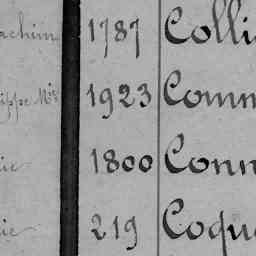 achim 1787 Colli
ippe Mie 1923 Comm
ie 1800 Conn
ie 219 Coqu